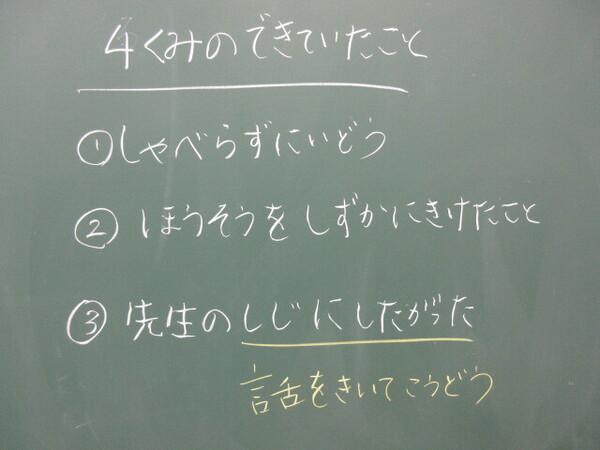 4くみのできていたこと
①しゃべらずにいどう
② ほうそうを しずかにきけたこと
③ 先生のしじにしたがった
話をきいてこうどう